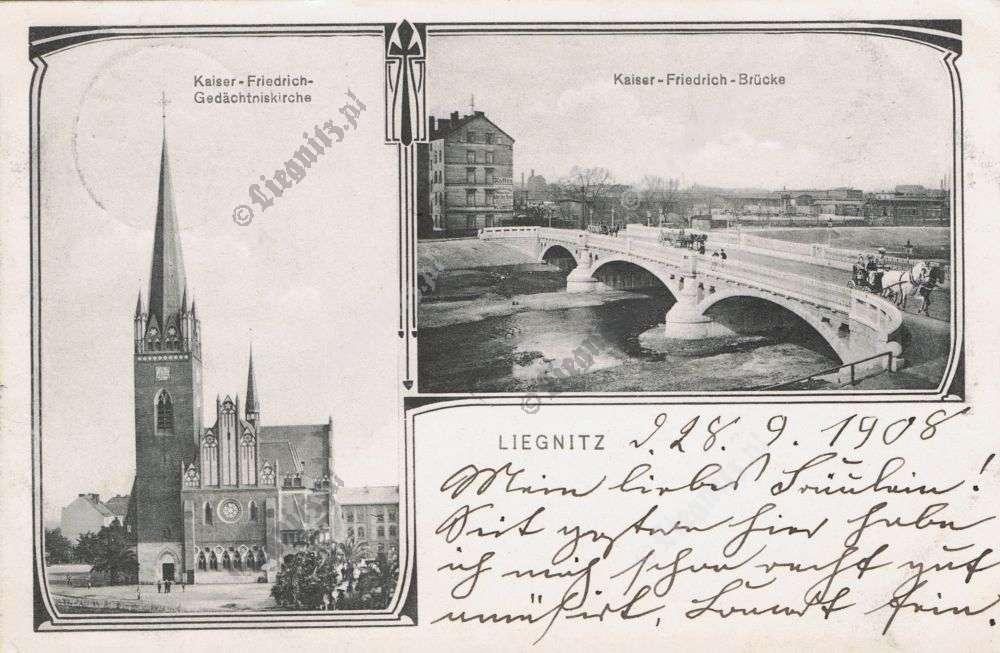 Kaiser-Friedrich-
Gedächtniskirche
Kaiser-Friedrich-Brücke
© Liegnitz.pl
© Liegnitz.pl
LIEGNITZ d. 28. 9. 1908
Mein liebes Fräulein!
Seit gestern hier habe
ich mich schon recht gut
amüsirt.